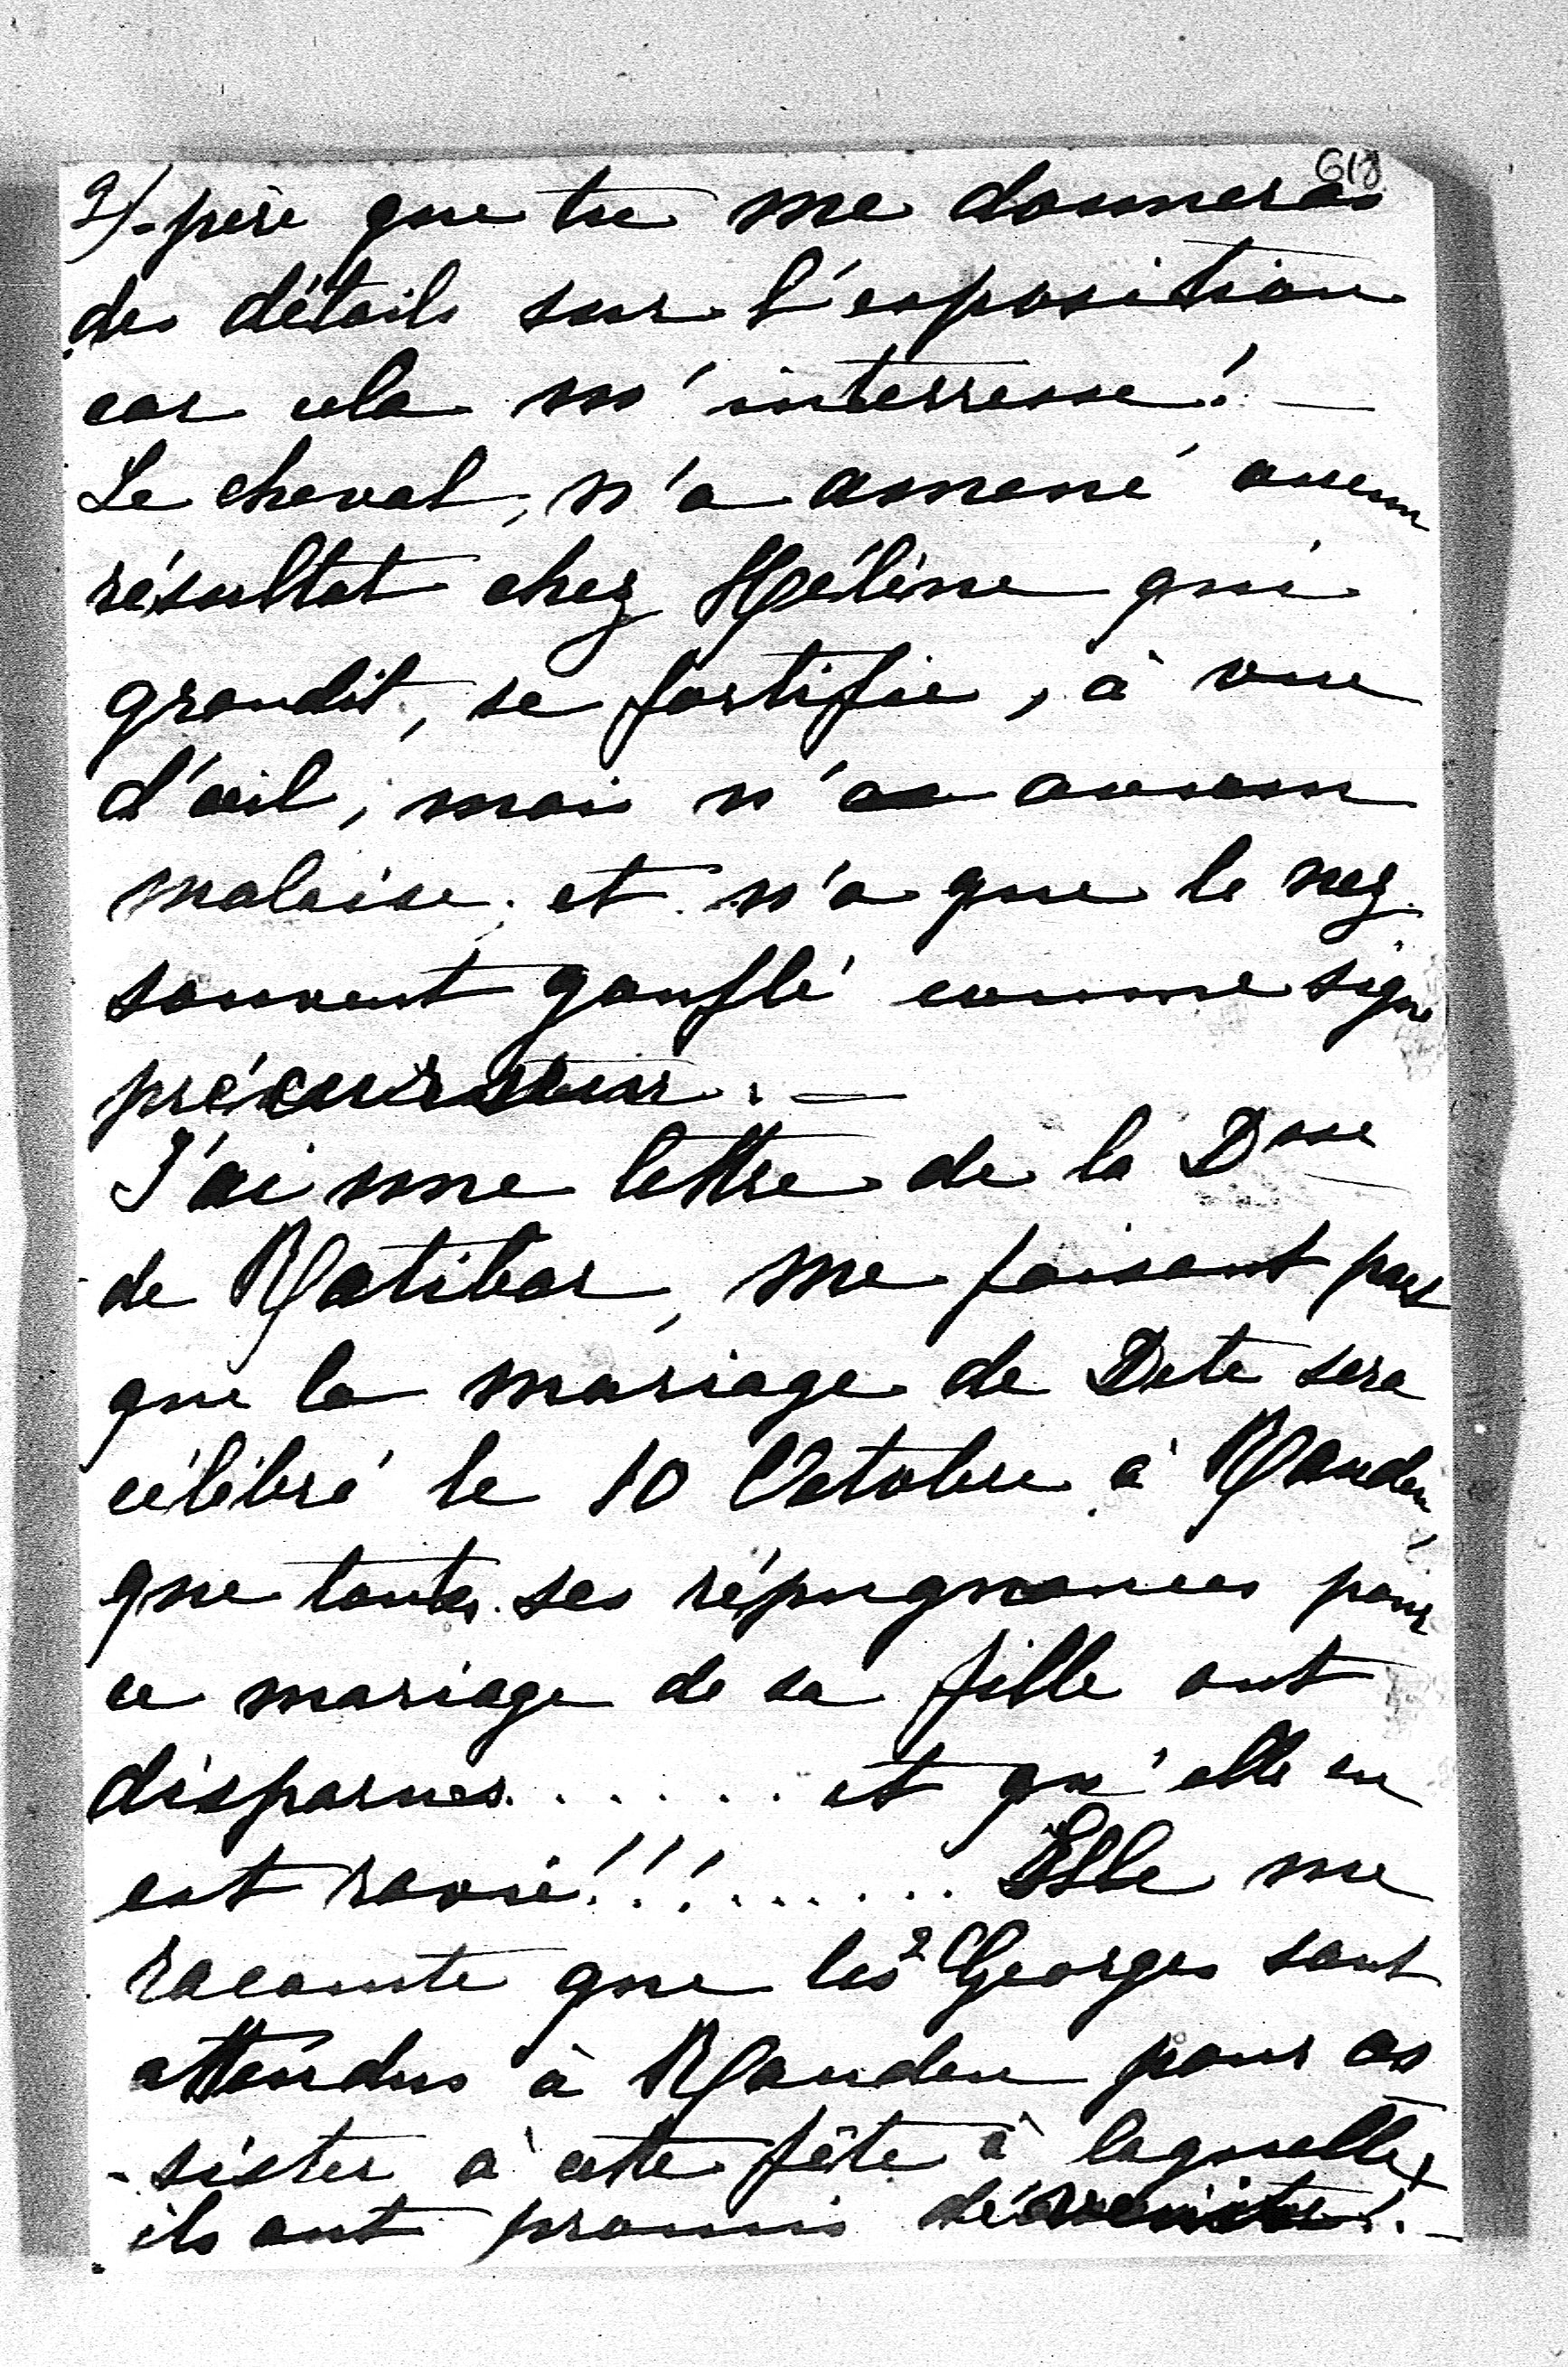 618
2/-père que tu me donneras
des détails sur l'exposition
car cela m'interresse! —
Le cheval, n'a amené aucun
résultat chez Hélène qui
grandit, se fortifie, à vue
d'œil, mais n'a aucun
malaise, et n'a que le nez
souvent gonflé comme signe
précurseur. —
J'ai une lettre de la Dsse
de Ratibor, me faisant part
que le mariage de Dete sera
célébré le 10 Octobre à Rauden,
que toutes ses répugnances pour
ce mariage de sa fille ont
disparues. . . . . . et qu'elle en
est ravie!!! . . . . . . Elle me
raconte que les 2 Georges sont
attendus à Rauden pour as
-sister à cette fête à laquelle
ils ont promis